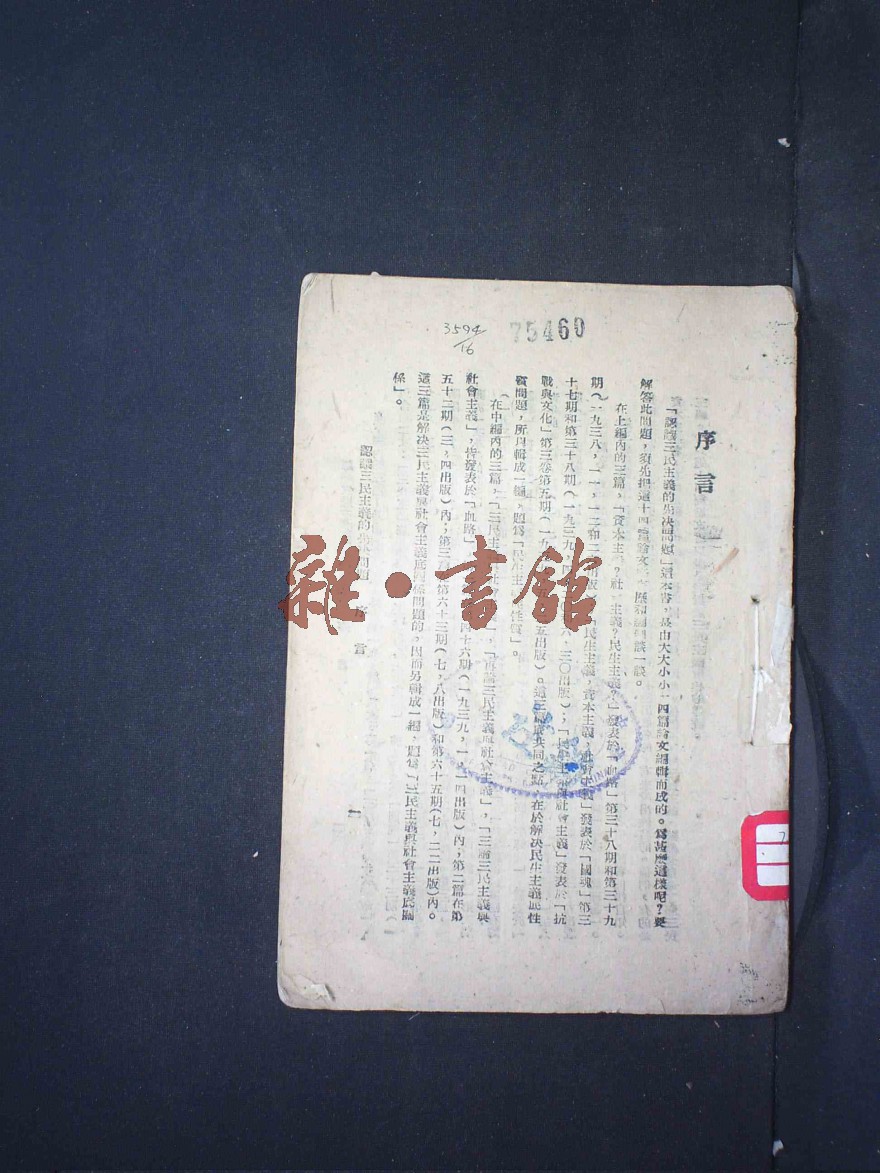 3594/16
75460
序言
「認識三民主義的先決問題」這本書,是由大大小小十四篇論文編輯而成的。爲甚麼這樣呢?要
解答此問題,須先把這十四篇論文 談一談。
在上編內的三篇,「資本主義?社會主義?民生主義?」發表於「血路」第三十八期和第三十九
期(一九三八,一一,一二和 出版 「民生主義,資本主義,社會主義」發表於「國魂」第三
十七期和第三十八期(一九三九, 三〇出版);「民生主義與社會主義」發表於「抗
戰與文化」第三卷第五期(一九 五出版)。這三篇底共同之點,在於解決民生主義底性
質問題,所以輯成一編,題爲「民生主義 性質」。
在中編內的三篇,「三民主 社會 」,「再論三民主義與社會主義」,「三論三民主義與
社會主義」,皆發表於「血路」 四十六期(一九三九,一,一四出版)內;第二篇在第
五十二期(三,四出版)內;第三 第六十三期(七,八出版)和第六十五期(七,二二出版)內。
這三篇是解決三民主義與社會主義底關係問題的,因而另輯成一編,題爲「三民主義與社會主義底關
係」。
認識三民主義的先決問題 序言
一
雜·書館